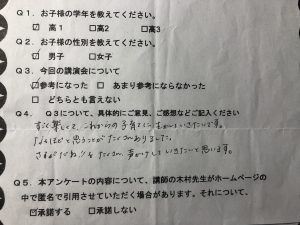 Q1. お子様の学年を教えてください。
☑高1 □高2 □高3
Q2. お子様の性別を教えてください。
☑男子 □女子
Q3. 今回の講演会について
☑参考になった □あまり参考にならなかった
□どちらとも言えない
Q4. Q3について、具体的にご意見、ご感想などご記入ください
すごく楽しくて、これからの子育てに生かしていきたいです。
なるほどと思うことがたくさんありました。
さすがだね!!をたくさん、声かけしていきたいと思います。
Q5. 本アンケートの内容について、講師の木村先生がホームページの
中で匿名で引用させていただく場合があります。それについて、
☑承諾する □承諾しない